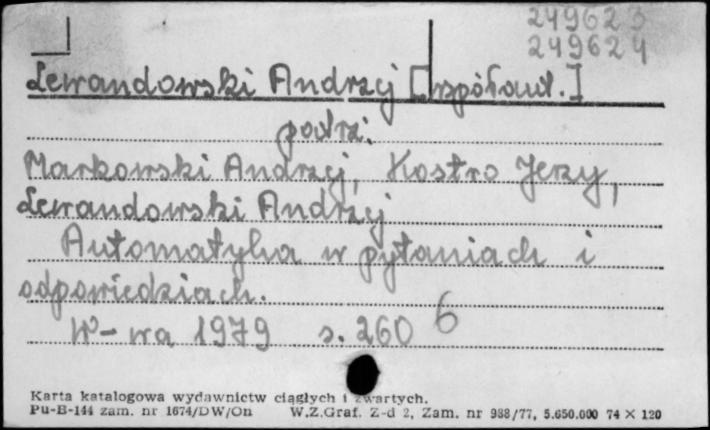 249623
249624
Lewandowski Andrzej [współaut.]
patrz:
Markowski Andrzej, Kostro Jerzy,
Lewandowski Andrzej
Automatyka w pytaniach i
odpowiedziach.
W-wa 1979 s. 260 6
Karta katalogowa wydawnictw ciągłych i zwartych.
Pu-B-144 zam. nr 1674/DW/On W.Z.Graf. Z-d 2, Zam. nr 988/77, 5.650.000 74 X 120